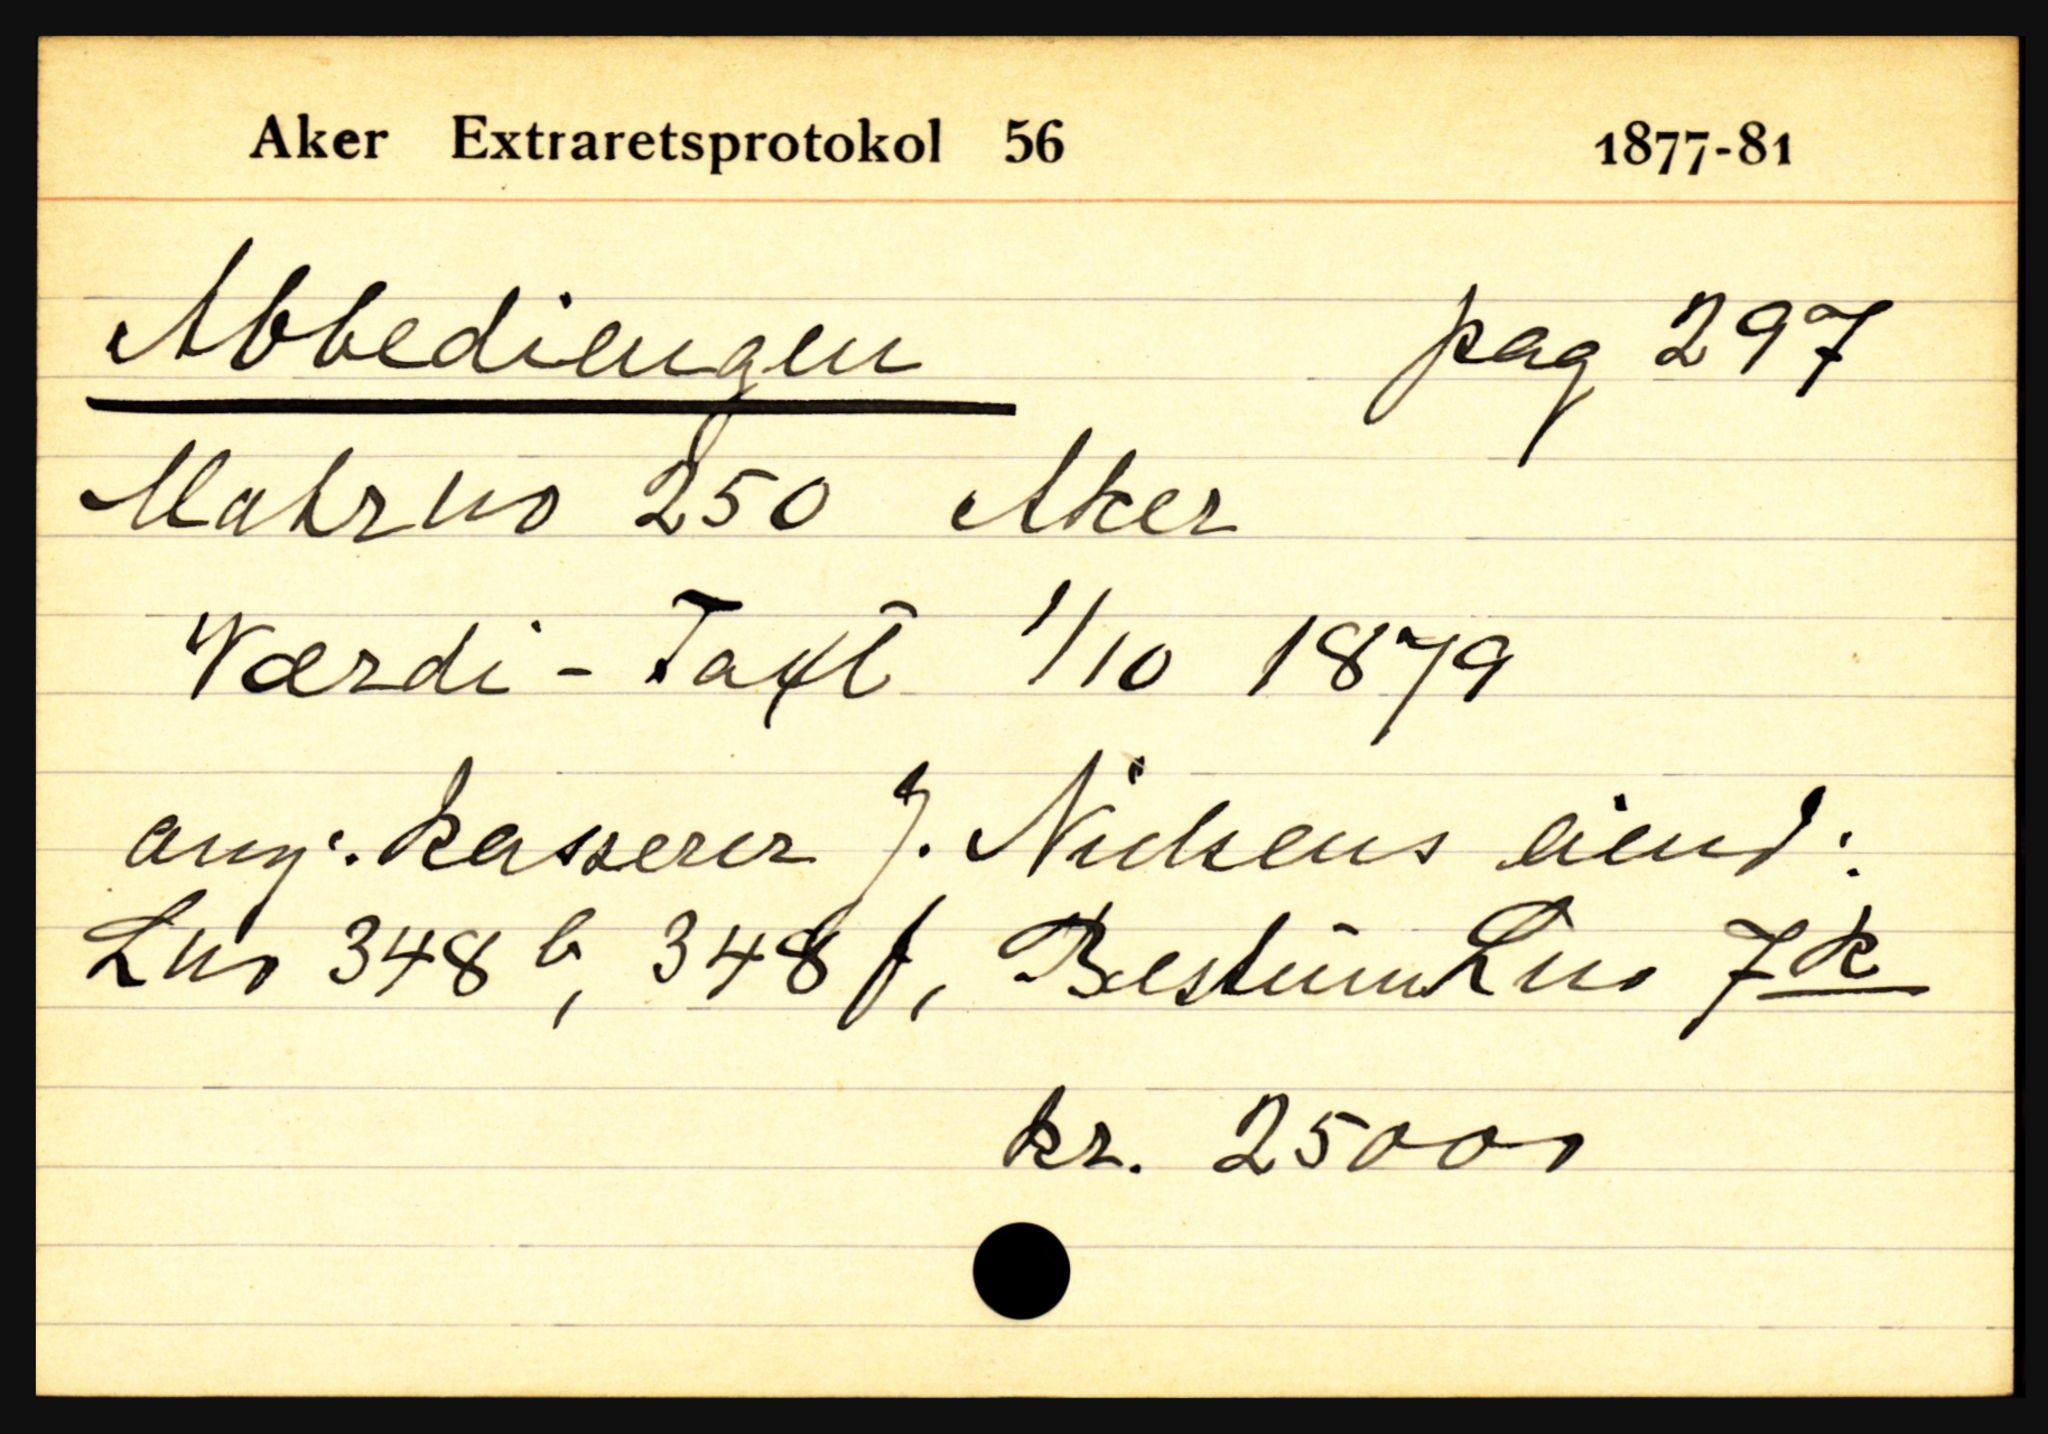 Aker Extraretsprotokol 56 1877-81
Abbediengen pag 297
Matrno 250 Aker
Værdi - Taxt 1/10 1879
ang. kasserer J. Nielsens eiend:
Lno 348 b, 348 f, Bestum Lno 7 k
kr. 25000